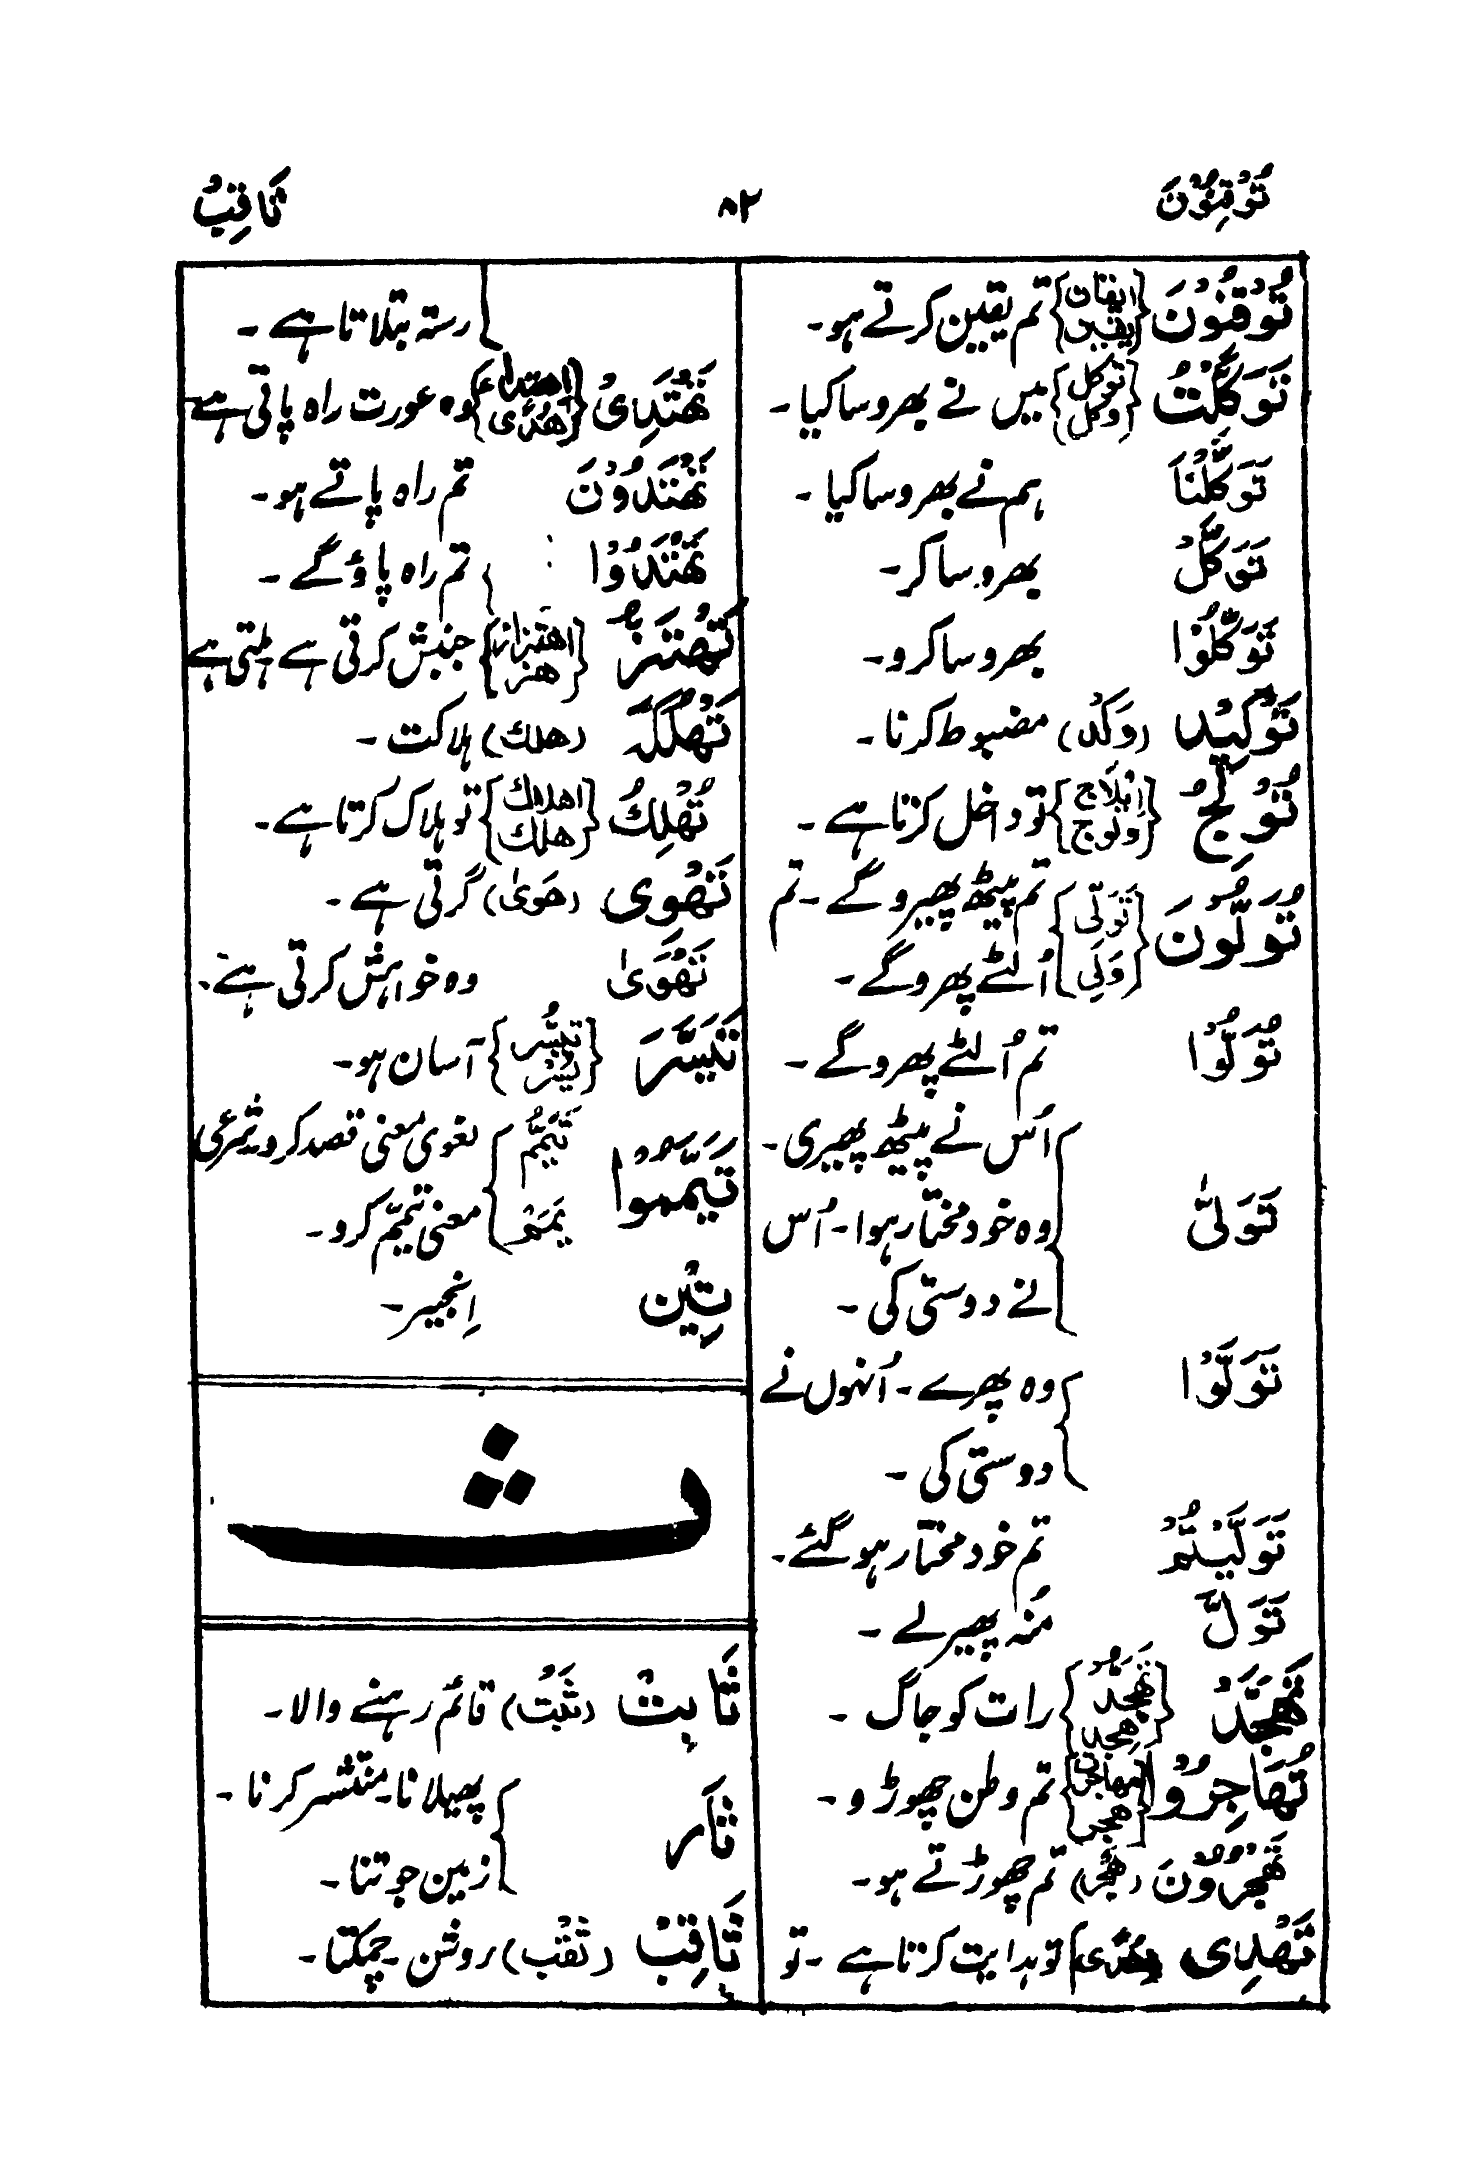 تُوْقِنُوْنَ ۸۲ ثَاقِبُ
تُوْقِنُوْنَ {ایقان یقین} تم یقین کرتے ہو۔
تَوَكَّلْتُ {توکل وکل} میں نے بھروسا کیا۔
تَوَكَّلْنَا ہم نے بھروسا کیا۔
تَوَكَّلْ بھروسا کر۔
تَوَكَّلُوْا بھروسا کرو۔
تَوْكِيْد (وَكْد) مضبوط کرنا۔
تُوْلِجُ {اِیْلَاج ولوج} تو داخل کرتا ہے۔
تُوَلُّوْنَ {تَوَلّی وَلِی} تم پیٹھ پھیرو گے۔ تم
اُلٹے پھرو گے۔
تُوَلُّوْا تم اُلٹے پھرو گے۔
تَوَلّٰى اُس نے پیٹھ پھیری۔
وہ خود مختار ہوا۔ اُس
نے دوستی کی۔
تَوَلَّوْا وہ پھرے۔ اُنہوں نے
دوستی کی۔
تَوَلَّيْتُمْ تم خود مختار ہو گئے۔
تَوَلَّ مُنہ پھیر لے۔
تَهَجَّدْ {تَهَجُّد هجد} رات کو جاگ۔
تُهَاجِرُوْا {مهاجرت هجر} تم وطن چھوڑو۔
تَهْجُرُوْنَ (هَجْر) تم چھوڑتے ہو۔
تَهْدِى (هُدًى) تو ہدایت کرتا ہے۔ تو
رستہ بتلاتا ہے۔
تَهْتَدِىْ {اهتداء هُدًى} وہ عورت راہ پاتی ہے
تَهْتَدُوْنَ تم راہ پاتے ہو۔
تَهْتَدُوْا تم راہ پاؤ گے۔
تَهْتَزُّ {اهتزاز هز} جنبش کرتی ہے ہلتی ہے
تَهْلُكَه (هلك) ہلاکت۔
تُهْلِكُ {اهلاك هلك} تو ہلاک کرتا ہے۔
تَهْوِى (هَوٰى) گرتی ہے۔
تَهْوٰى وہ خواہش کرتی ہے۔
تَيَسَّرَ {تيسّر يسر} آسان ہو۔
تَيَمَّمُوْا {تَيَمُّم يَمَم} لغوی معنی قصد کرو۔ شرعی
معنی تیمّم کرو۔
تِيْن اِنجیر۔
ث
ثَابِتٌ (ثَبَت) قائم رہنے والا۔
ثَار پھیلانا۔ منتشر کرنا۔
زمین جوتنا۔
ثَاقِبٌ (ثَقْب) روشن۔ چمکتا۔